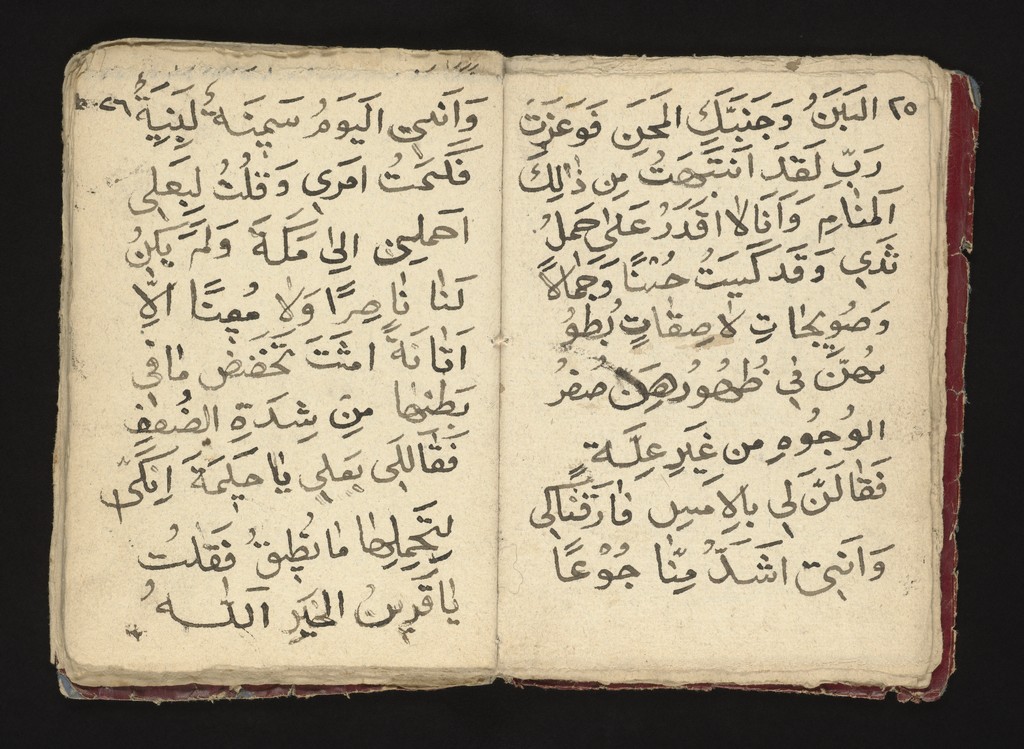 ٢٥ اَلبَنُ وَجَنَبَّكِ المَحَنِ فَوَعَزَتَ
رَبِّ لَقَدَ اَنتَبَهتُ مِن ذٰالِكَ
اَلمَنٰامِ وَاَنَالاٰ اَقَدَرُ عَلىٰ حَملُ
ثَدَيِ وَقَد كَسَيتُ حُسنًا وَجَمالاً
وَصُويجٰاتِ لاٰصِقاتٍ بُطُو
نُهنَّ فِي ظُهُورُهِنَ صُفرُ
الوُجُوهِ مِن غَيَرِ عِلَّةٍ
فَقٰالَنَّ لِي بِالاِمَسِ فٰارَقتٰاكِي
وَاَنتِي اَشَدَّ مِنّٰا جُوُعًا
٢٦ وَاَنتِي اَليَوَمُ سَمِينَةُ لِبَنِيَةٌ
فَكَتَمتُ اَمَرِي وَقُلتُ لِبَعَلِي
اَحمَلِينِ اِلىٰ مَكَةَ وَلَمَ يَكِنُ
لَنٰا نٰاصِرًا وَلاٰ مُعِينًا اِلاَّ
اَتٰانَةً اَمثَتَ تَخَفَضُ مٰا فِي
بَطنِهٰا مِنِ شِدَةِ الضُعفِ
فَقٰالَلِي بَعَلِي يٰا حَلِيمَةَ اِنَكِّي
لتَحمِلِيهٰا مٰا تُطِيقُ فَقَلتُ
يٰا قَرِينُ الخَيَرِ اَللّٰهُ